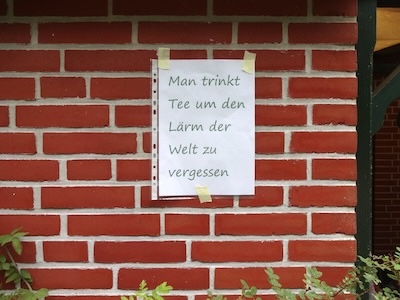 Man trinkt
Tee um den
Lärm der
Welt zu
vergessen